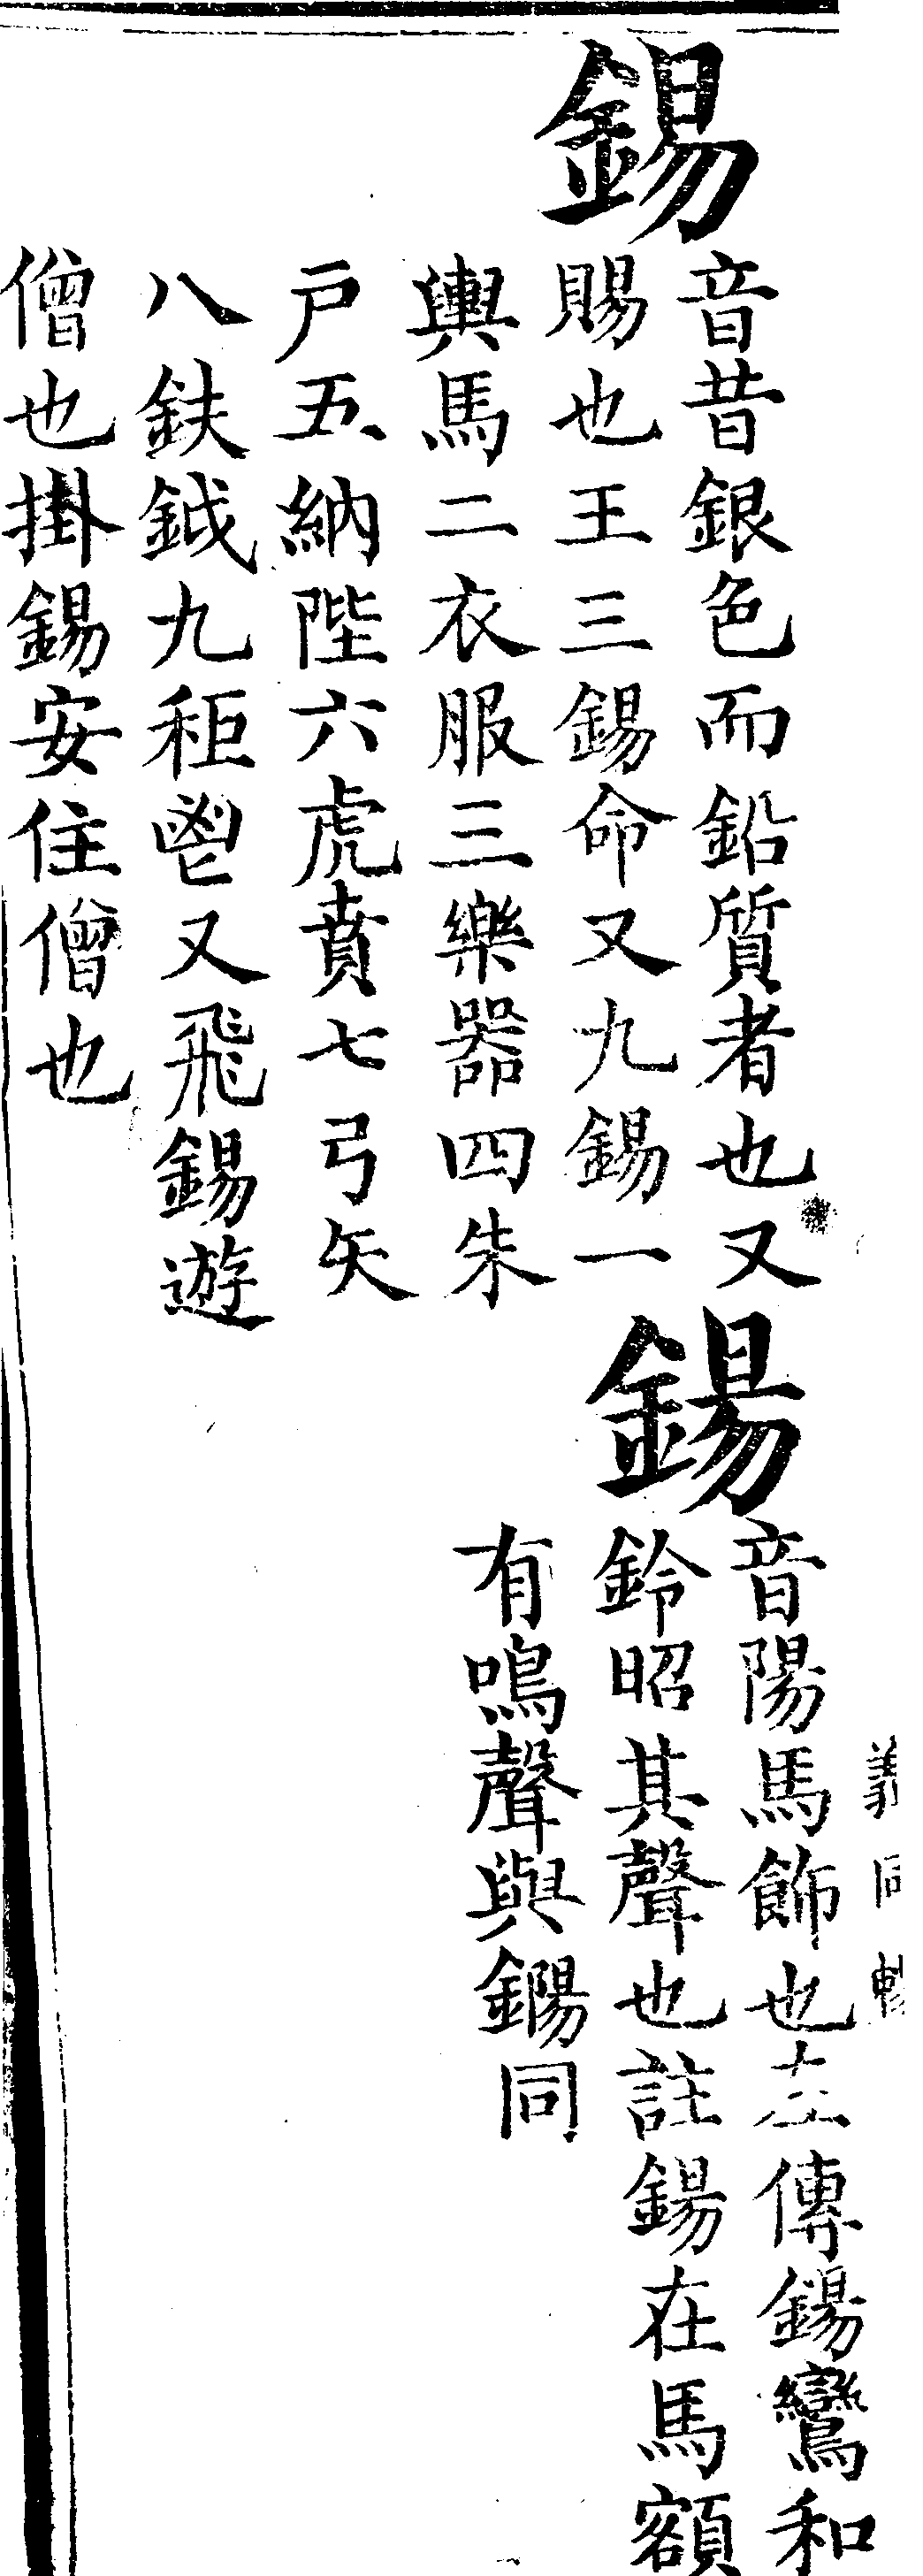 錫
音昔銀色而鉛質者也又
賜也王三錫命又九錫一
輿馬二衣服三樂器四朱
戶五納陛六虎賁七弓矢
八鈇鉞九秬鬯又飛錫遊
僧也掛錫安住僧也
鍚
音陽馬飾也左傳鍚鸞和
鈴昭其聲也註鍚在馬額
有鳴聲與鐊同
義同